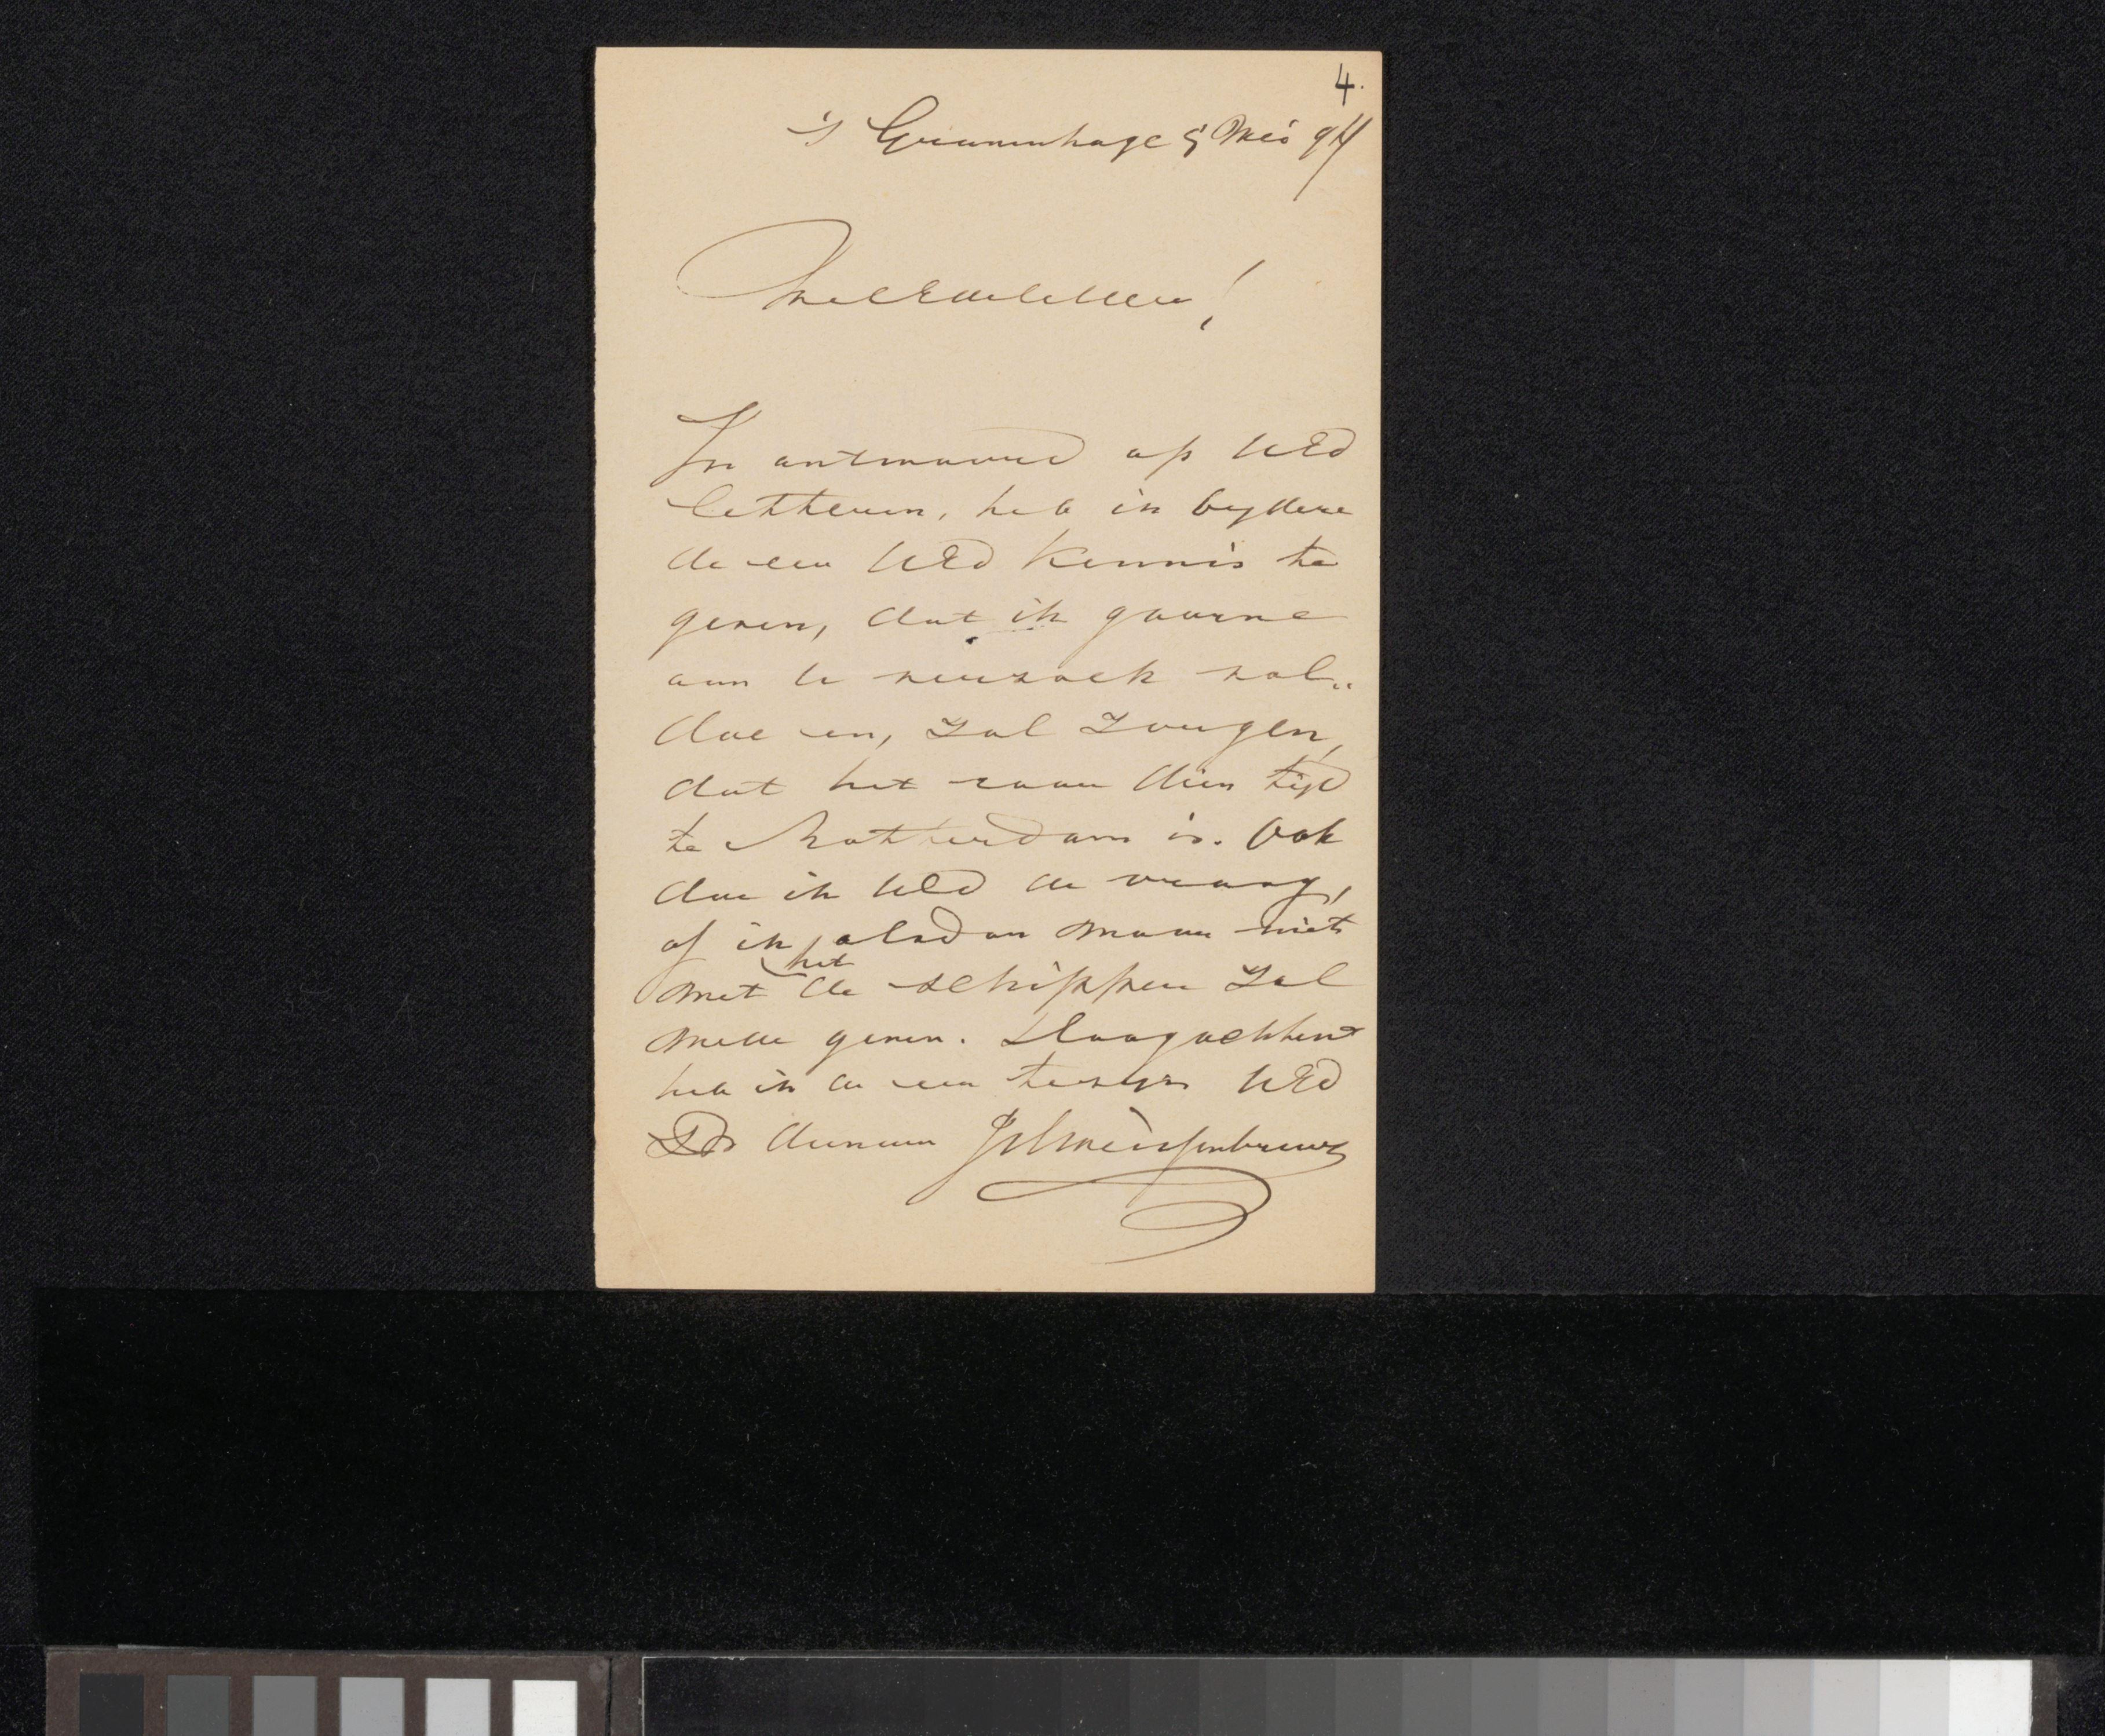 4.
's Gravenhage 5 Mei 94
WelEdele Heer!
In antwoord op UEd
letteren, heb ik by deze
de eer UEd kennis te
geven, dat ik gaarne
aan U verzoek vol„
doe en, zal zorgen,
dat het voor dien tijd
te Rotterdam is. Ook
doe ik UEd de vraag,
of ik het alsdan maar niet
met de schipper zal
mede geven. Hoogachtend
heb ik de eer te zyn UEd
Dv dienaar JHWeissenbruch